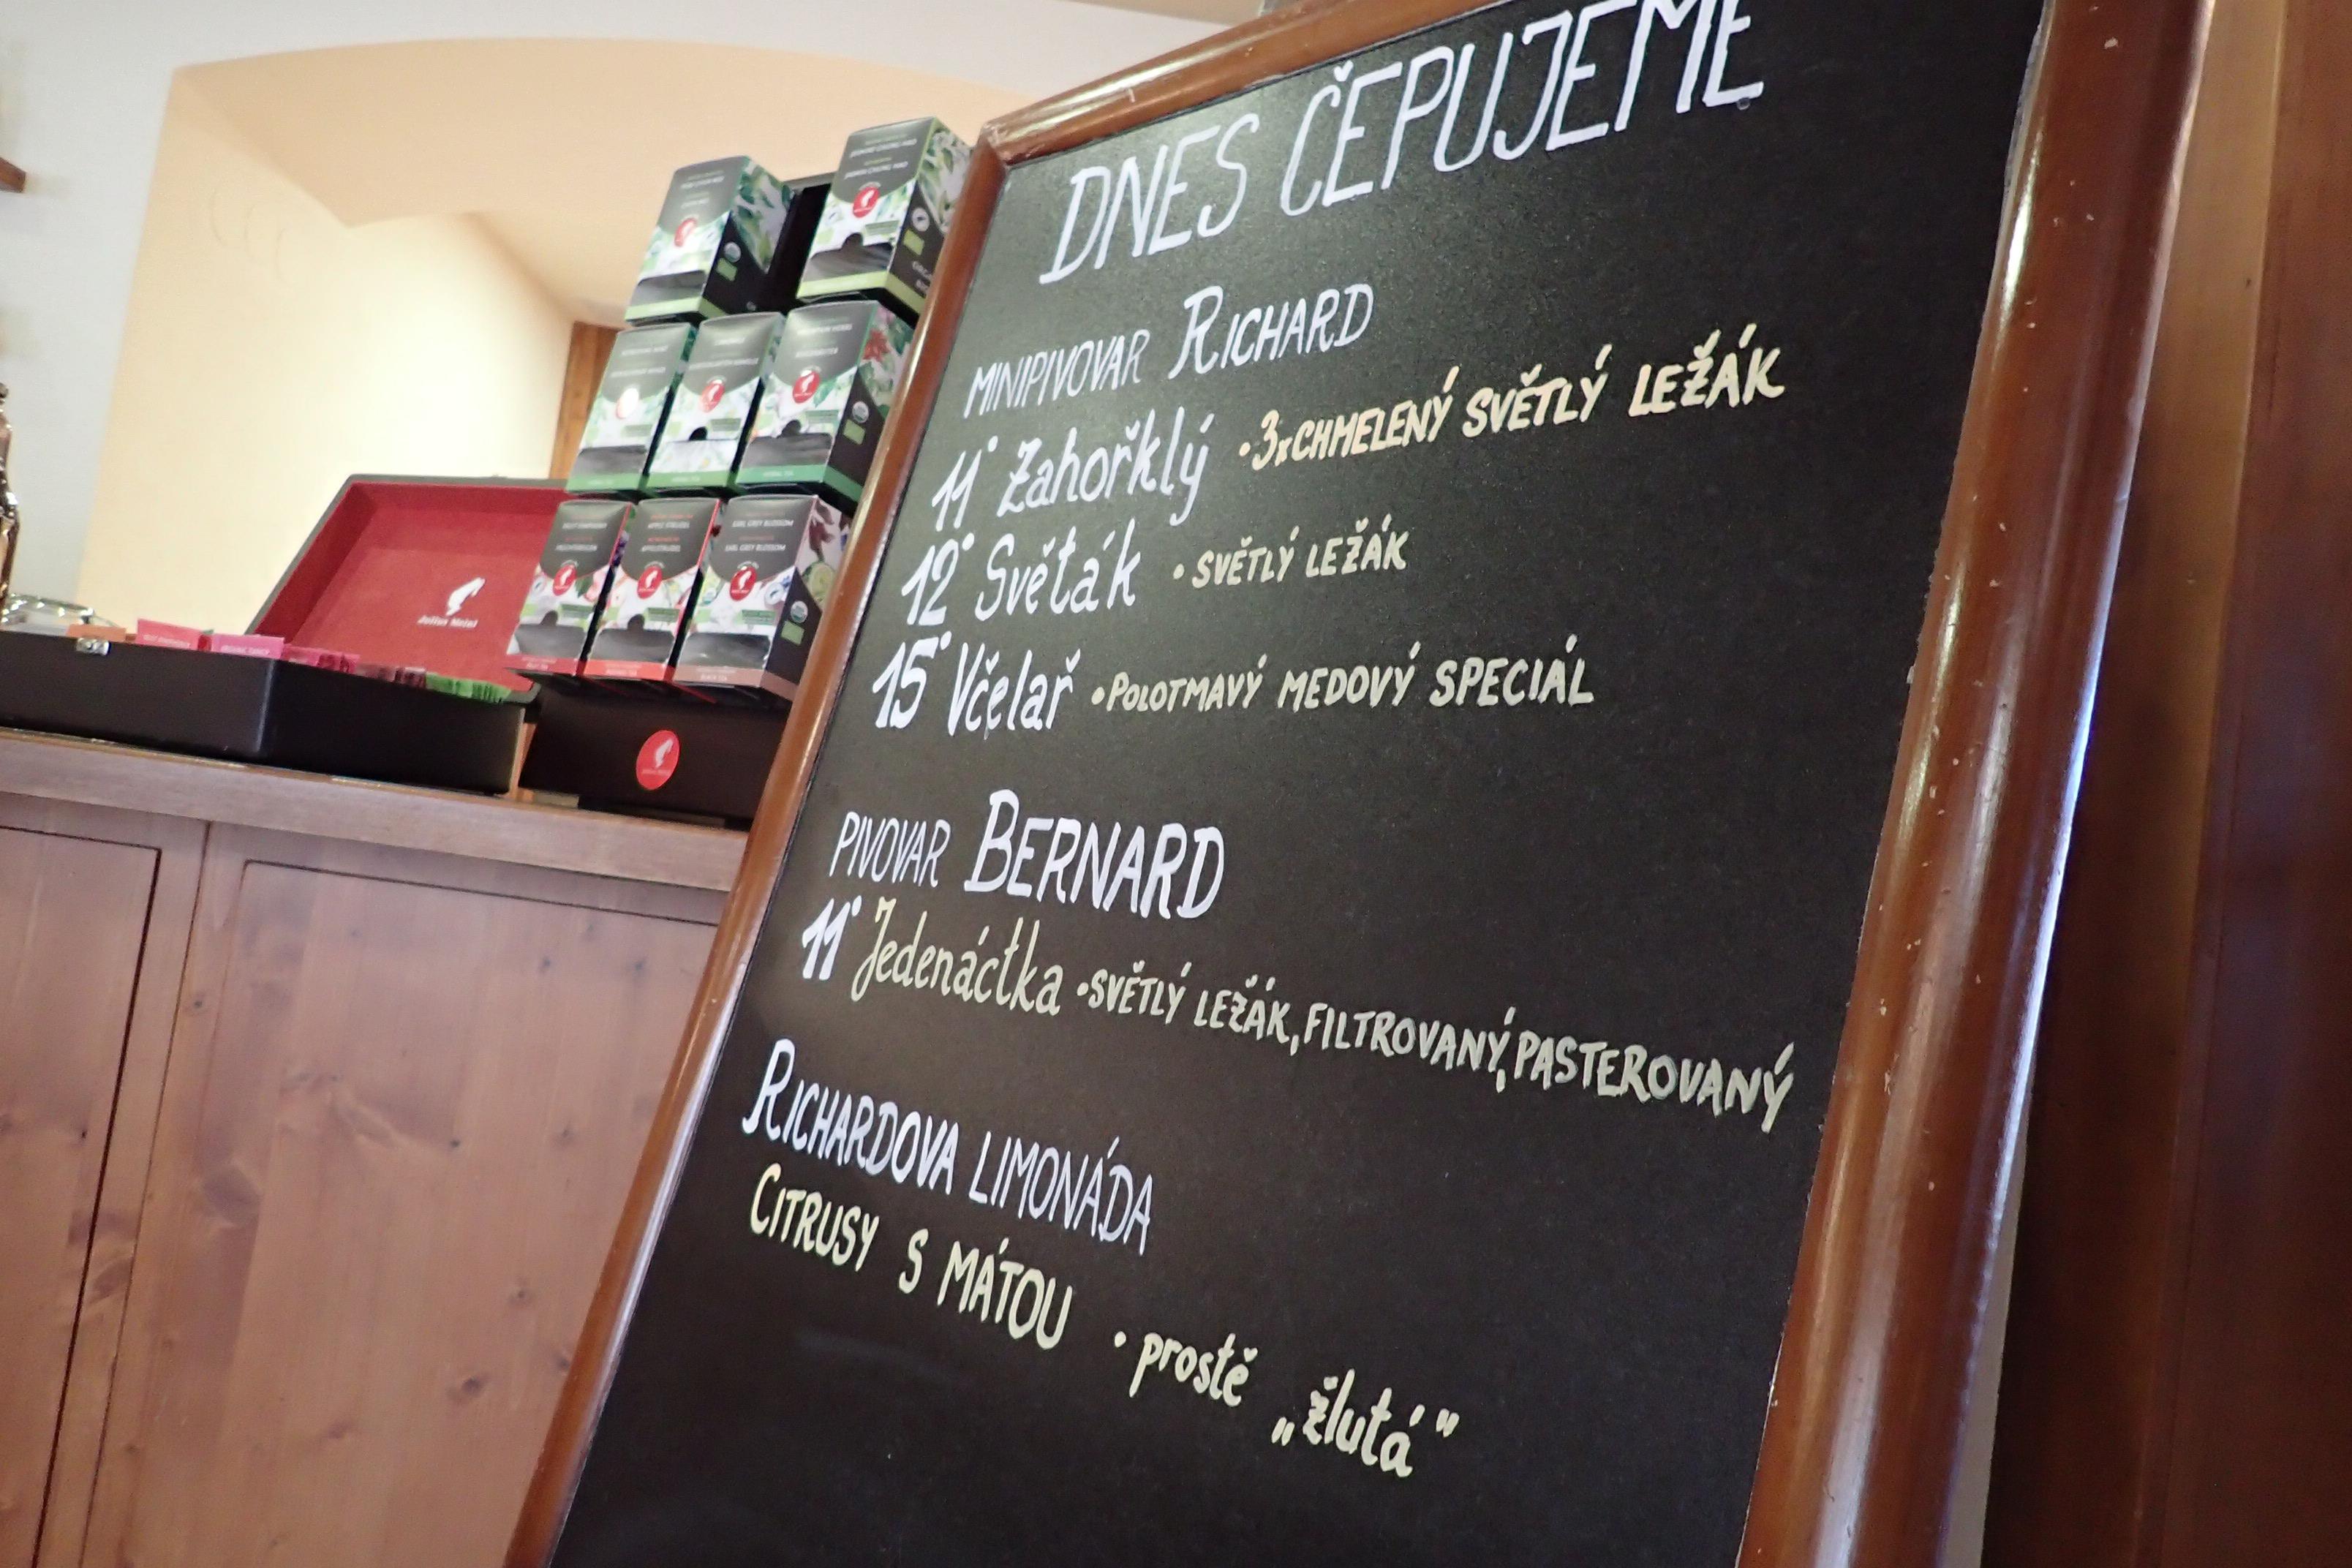 DNES ČEPUJEME
MINIPIVOVAR RICHARD
11° Zahořklý • 3x CHMELENÝ SVĚTLÝ LEŽÁK
12° Světák • SVĚTLÝ LEŽÁK
15° Včelař • POLOTMAVÝ MEDOVÝ SPECIÁL
PIVOVAR BERNARD
11° Jedenáctka • SVĚTLÝ LEŽÁK, FILTROVANÝ, PASTEROVANÝ
RICHARDOVA LIMONÁDA
CITRUSY S MÁTOU • prostě „žlutá"
Julius Meinl
EARL GREY BLOSSOM
EARL GREY BLOSSOM